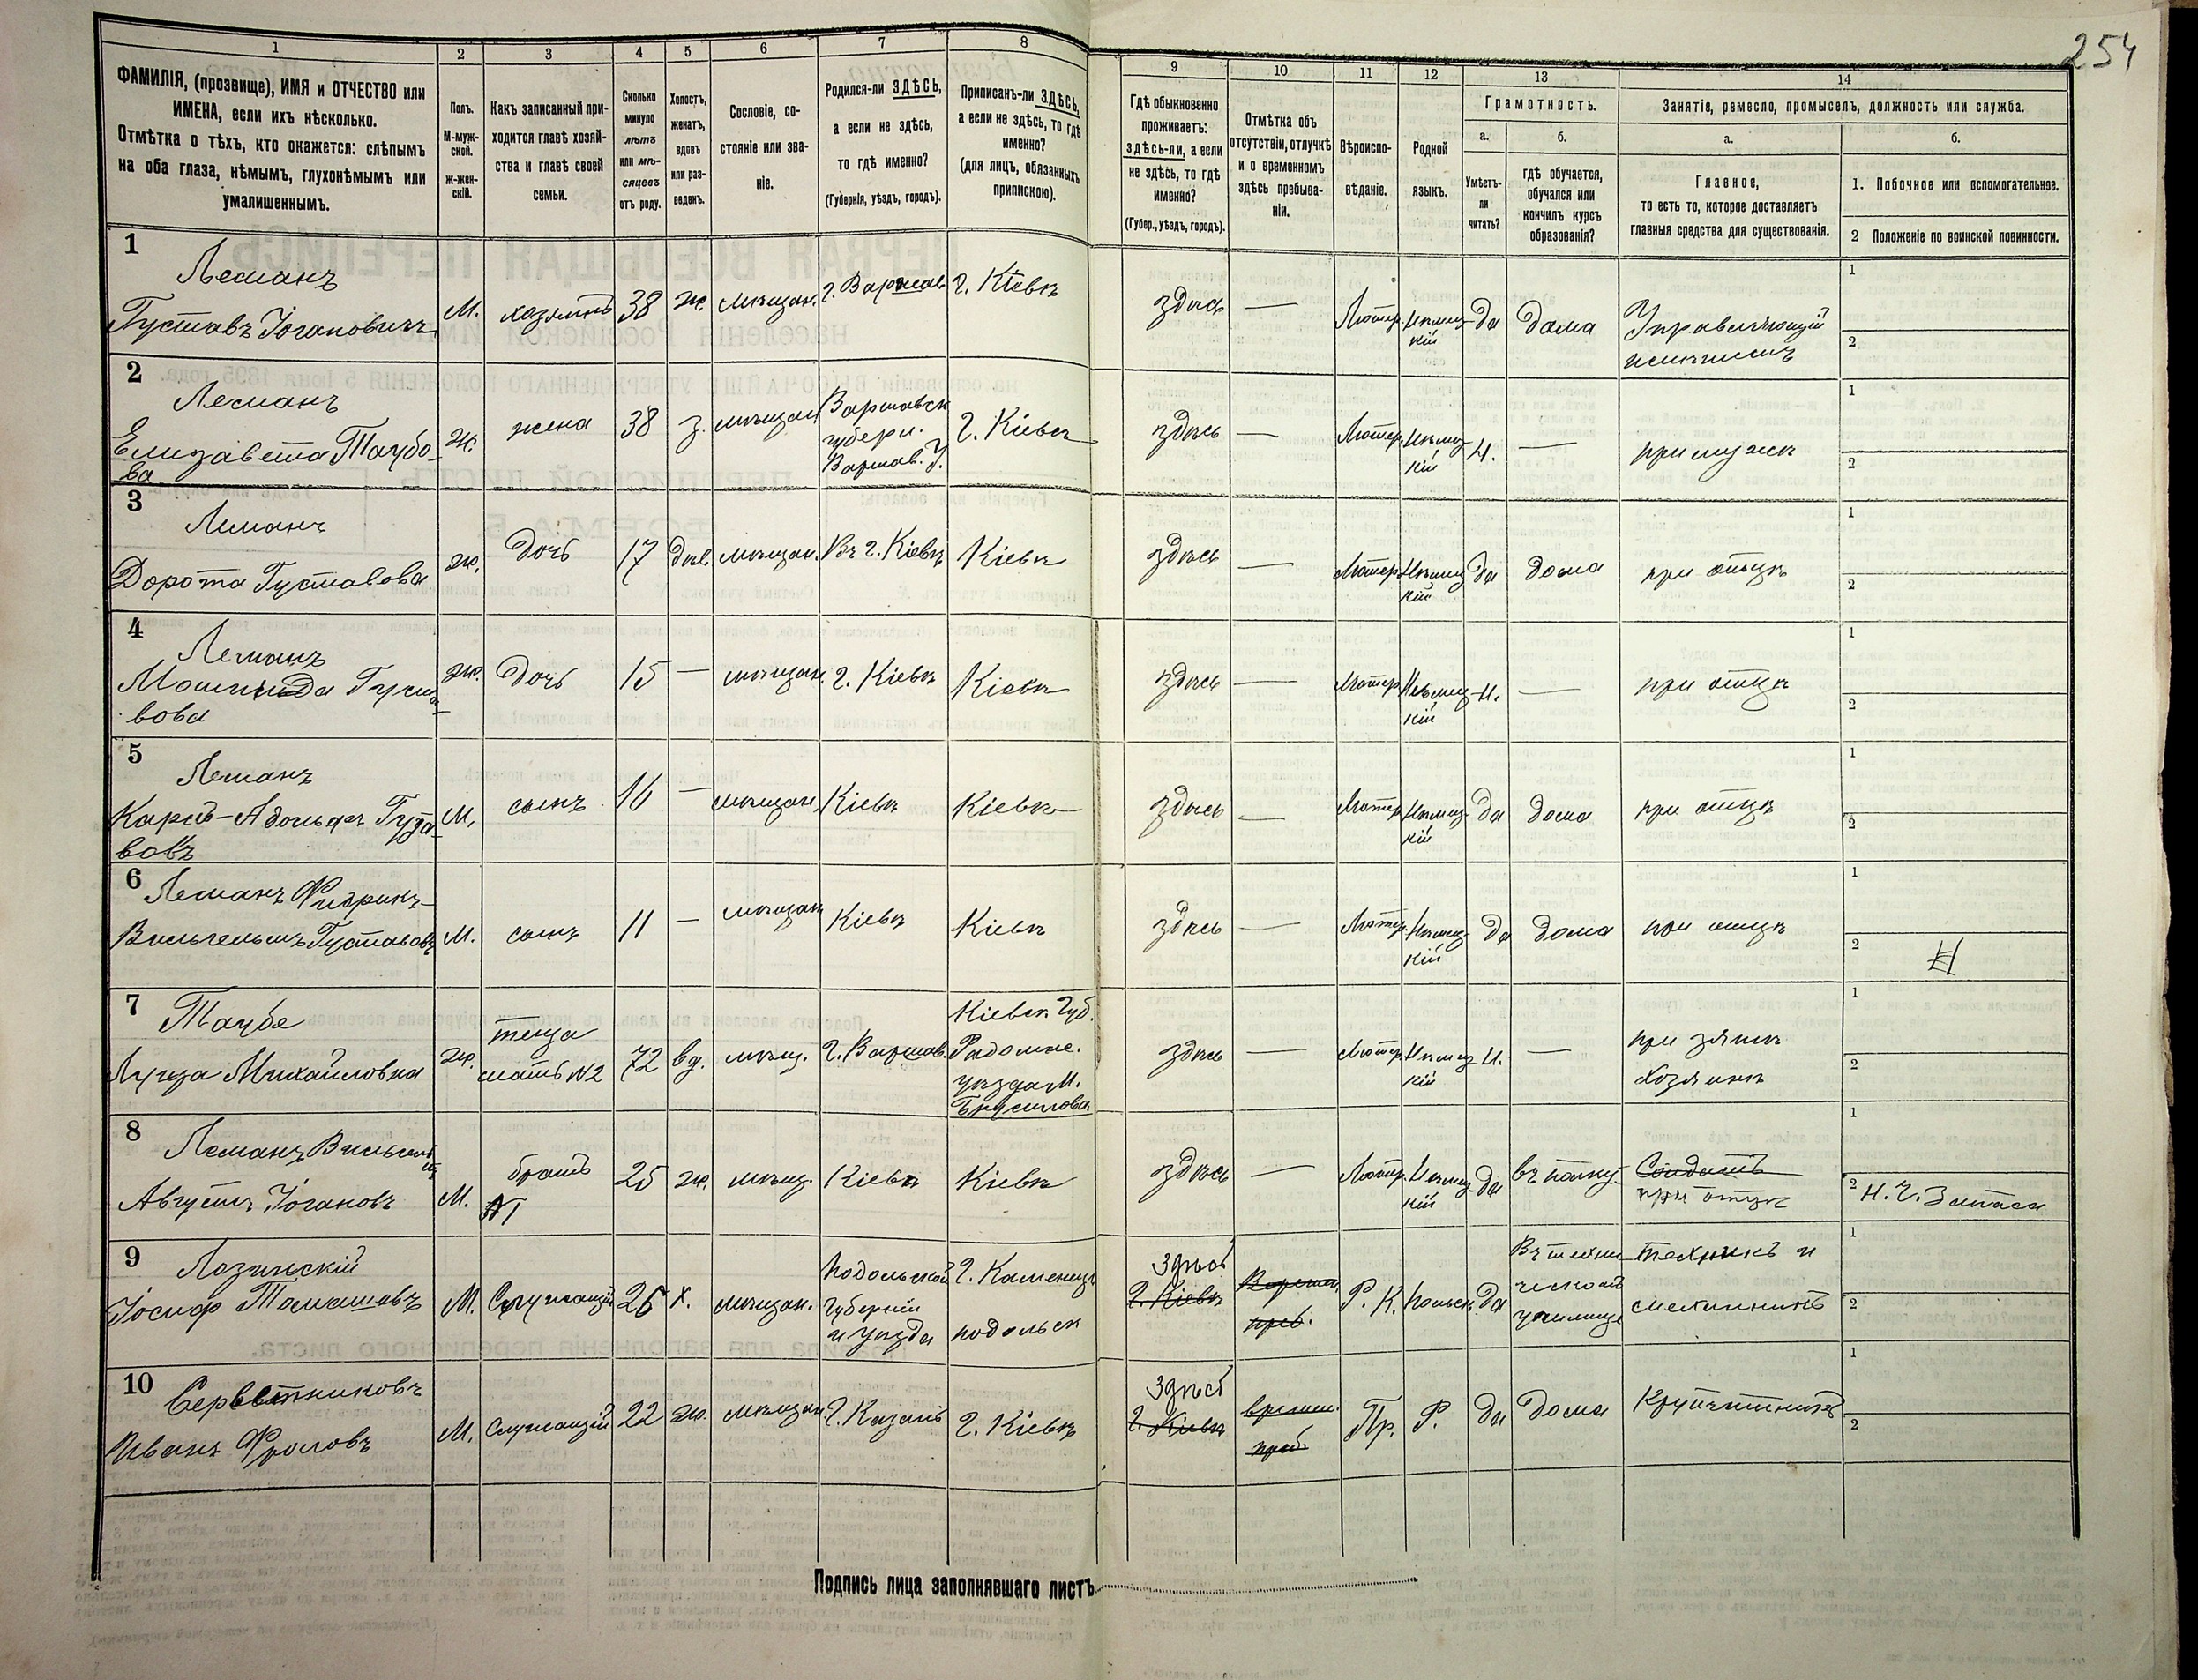 254
1 2 3 4 5 6 7 8 9 10 11 12 13 14
ФАМИЛІЯ, (прозвище), ИМЯ и ОТЧЕСТВО или
ИМЕНА, если ихъ нѣсколько.
Отмѣтка о тѣхъ, кто окажется: слѣпымъ
на оба глаза, нѣмымъ, глухонѣмымъ или
умалишеннымъ.
Полъ.
М-муж-
ской.
ж-жен-
скій.
Какъ записанный при-
ходится главѣ хозяй-
ства и главѣ своей
семьи.
Сколько
минуло
лѣтъ
или мѣ-
сяцевъ
отъ роду.
Холостъ,
женатъ,
вдовъ
или раз-
веденъ.
Сословіе, со-
стояніе или зва-
ніе.
Родился-ли ЗДѢСЬ,
а если не здѣсь,
то гдѣ именно?
(Губернія, уѣздъ, городъ).
Приписанъ-ли ЗДѢСЬ,
а если не здѣсь, то гдѣ
именно?
(для лицъ, обязанныхъ
припискою).
Гдѣ обыкновенно
проживаетъ:
здѣсь-ли, а если
не здѣсь, то гдѣ
именно?
(Губер., уѣздъ, городъ).
Отмѣтка объ
отсутствіи, отлучкѣ
и о временномъ
здѣсь пребыва-
ніи.
Вѣроиспо-
вѣданіе.
Родной
языкъ.
Грамотность.
а.
Умѣетъ-
ли
читать?
б.
гдѣ обучается,
обучался или
кончилъ курсъ
образованія?
Занятіе, ремесло, промыселъ, должность или служба.
а.
Главное,
то есть то, которое доставляетъ
главныя средства для существованія.
б.
1. Побочное или вспомогательное.
2 Положеніе по воинской повинности.
1
Леманъ
Густавъ Іогановичъ
М.
хозяинъ
38
ж.
мѣщан.
г. Варшав
г. Кіевъ
здѣсь
—
Лютер.
Нѣмец-
кій
да
дома
Управляющій
1
2
2
Леманъ
Елизавета Таубо-
ва
ж.
жена
38
з.
мѣщан.
Варшавск
губерн.
Варшав. У.
г. Кіевъ
здѣсь
—
Лютер.
Нѣмец-
кій
Н.
—
при мужѣ
1
2
3
Леманъ
Дорота Густавова
ж.
дочь
17
дѣв.
мѣщан.
Въ г. Кіевѣ
Кіевѣ
здѣсь
—
Лютер.
Нѣмец-
кій
да
дома
при отцѣ
1
2
4
Леманъ
вова
ж.
дочь
15
—
мѣщан.
г. Кіевѣ
Кіевѣ
здѣсь
—
Лютер
Нѣмец-
кій
Н.
—
при отцѣ
1
2
5
Леманъ
Карлъ-Адольфъ Густа-
вовъ
М.
сынъ
16
—
мѣщан.
Кіевѣ
Кіевѣ
здѣсь
—
Лютер
Нѣмец-
кій
да
дома
при отцѣ
1
2
6
Леманъ Фидрихъ-
Вильгельмъ Густавовъ
М.
сынъ
11
—
мѣщан
Кіевѣ
Кіевѣ
здѣсь
—
Лютер.
Нѣмец-
кій
да
дома
при отцѣ
1
2
7
Таубе
Луиза Михайловна
ж.
теща
мать №2
72
вд.
мѣщ.
г. Варшав.
Кіевск. Губ.
Радомыс.
уѣзда М.
Брусилова.
здѣсь
—
Лютер
Нѣмец-
кій
Н.
—
при зятѣ
хозяинѣ
1
2
8
Леманъ Вильгель
мъ
Августъ Іогановъ
М.
братъ
№1
25
ж.
мѣщ.
Кіевѣ
Кіевѣ
здѣсь
—
Лютер.
Нѣмец-
кій
да
въ полку.
Солдатъ
при отцѣ
1
2 Н. Ч. Запаса
9
Лозинскій
Іосифъ Томашевъ
М.
Служащій
26
х.
мѣщан.
Подольской
Губерніи
и уѣзда
г. Каменецъ
подольск
Здѣсь
г. Кіевѣ
Времен.
преб.
Р. К.
Польск.
да
Въ техни-
ческомъ
училищѣ
Техникъ и
1
2
10
Иванъ Фроловъ
М.
Служащій
22
ж.
мѣщан
г. Казань
г. Кіевъ
Здѣсь
г. Кіевѣ
времен.
преб.
Пр.
Р.
да
дома
Крупчатникъ
1
2
Подпись лица заполнявшаго листъ